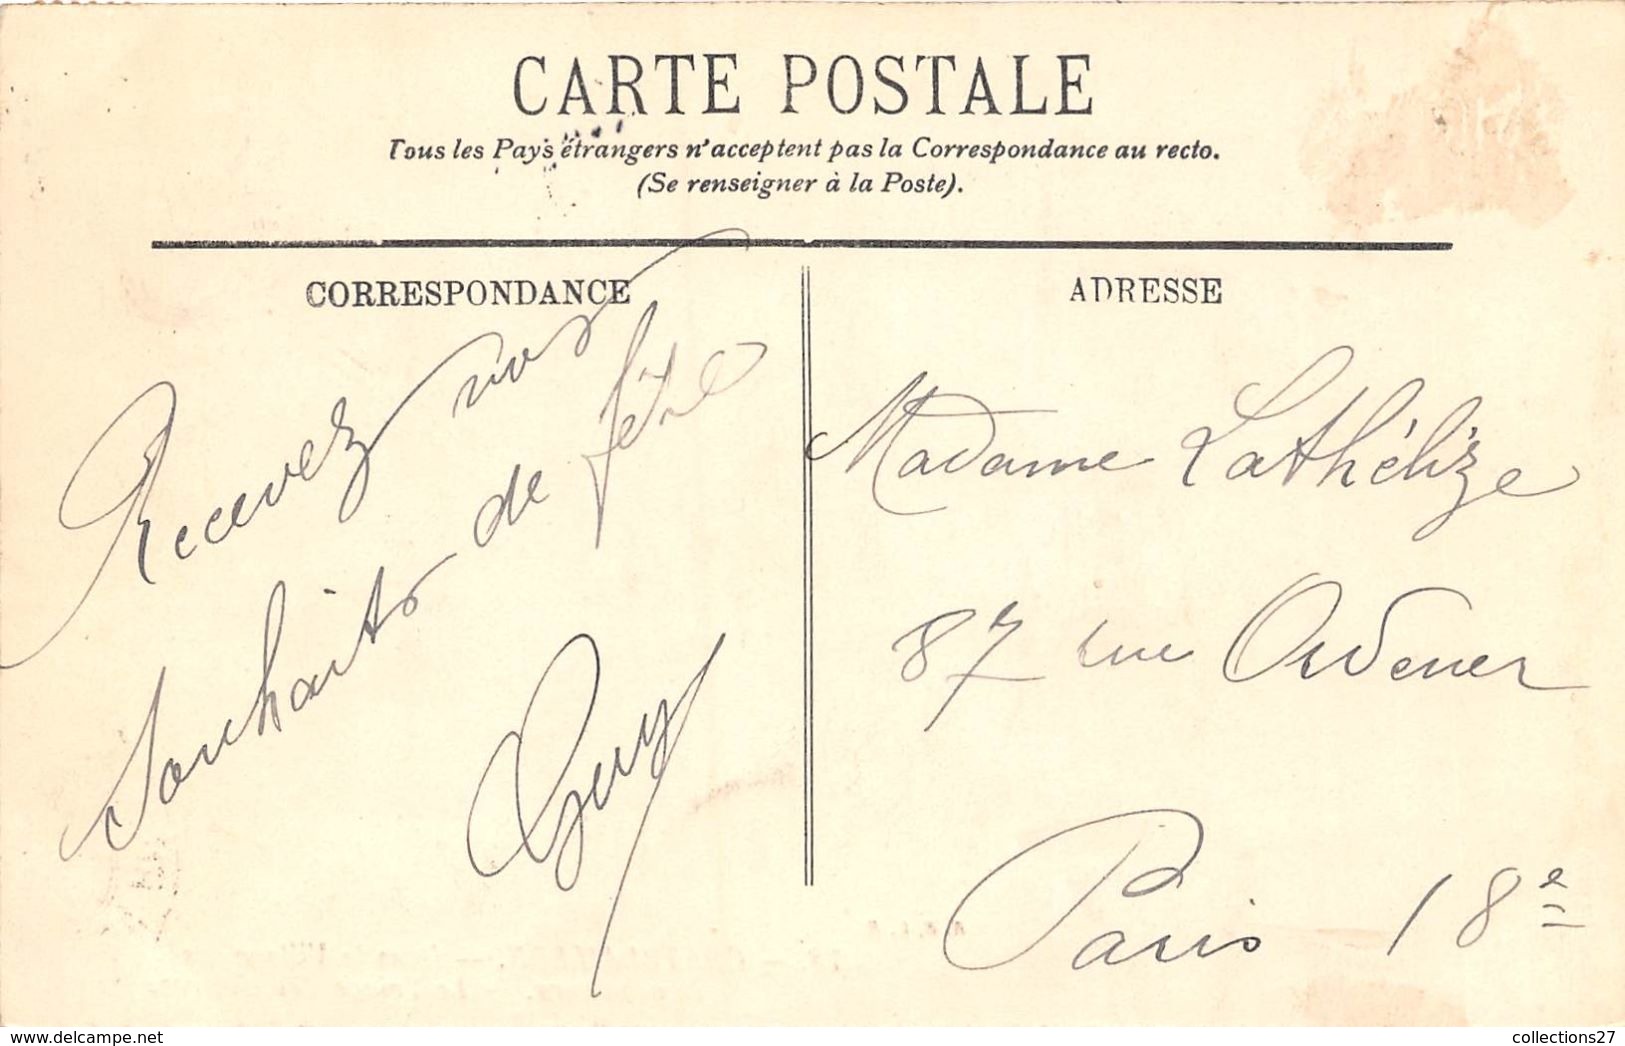 CARTE POSTALE
Tous les Pays étrangers n'acceptent pas la Correspondance au recto.
(Se renseigner à la Poste).
CORRESPONDANCE
Recevez nos
souhaits de fête
Guy
ADRESSE
Madame Lathélize
87 rue Ordener
Paris 18e
delcampe.net
collections27